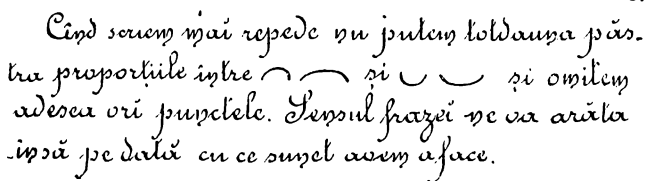 Cînd scriem mai repede nu putem totdauna păs-
tra proporțiile între ⌒ ⌒ și ⌣ ⌣ și omitem
adesea ori punctele. Sensul frazei ne va arăta
însă pe dată cu ce sunet avem a face.